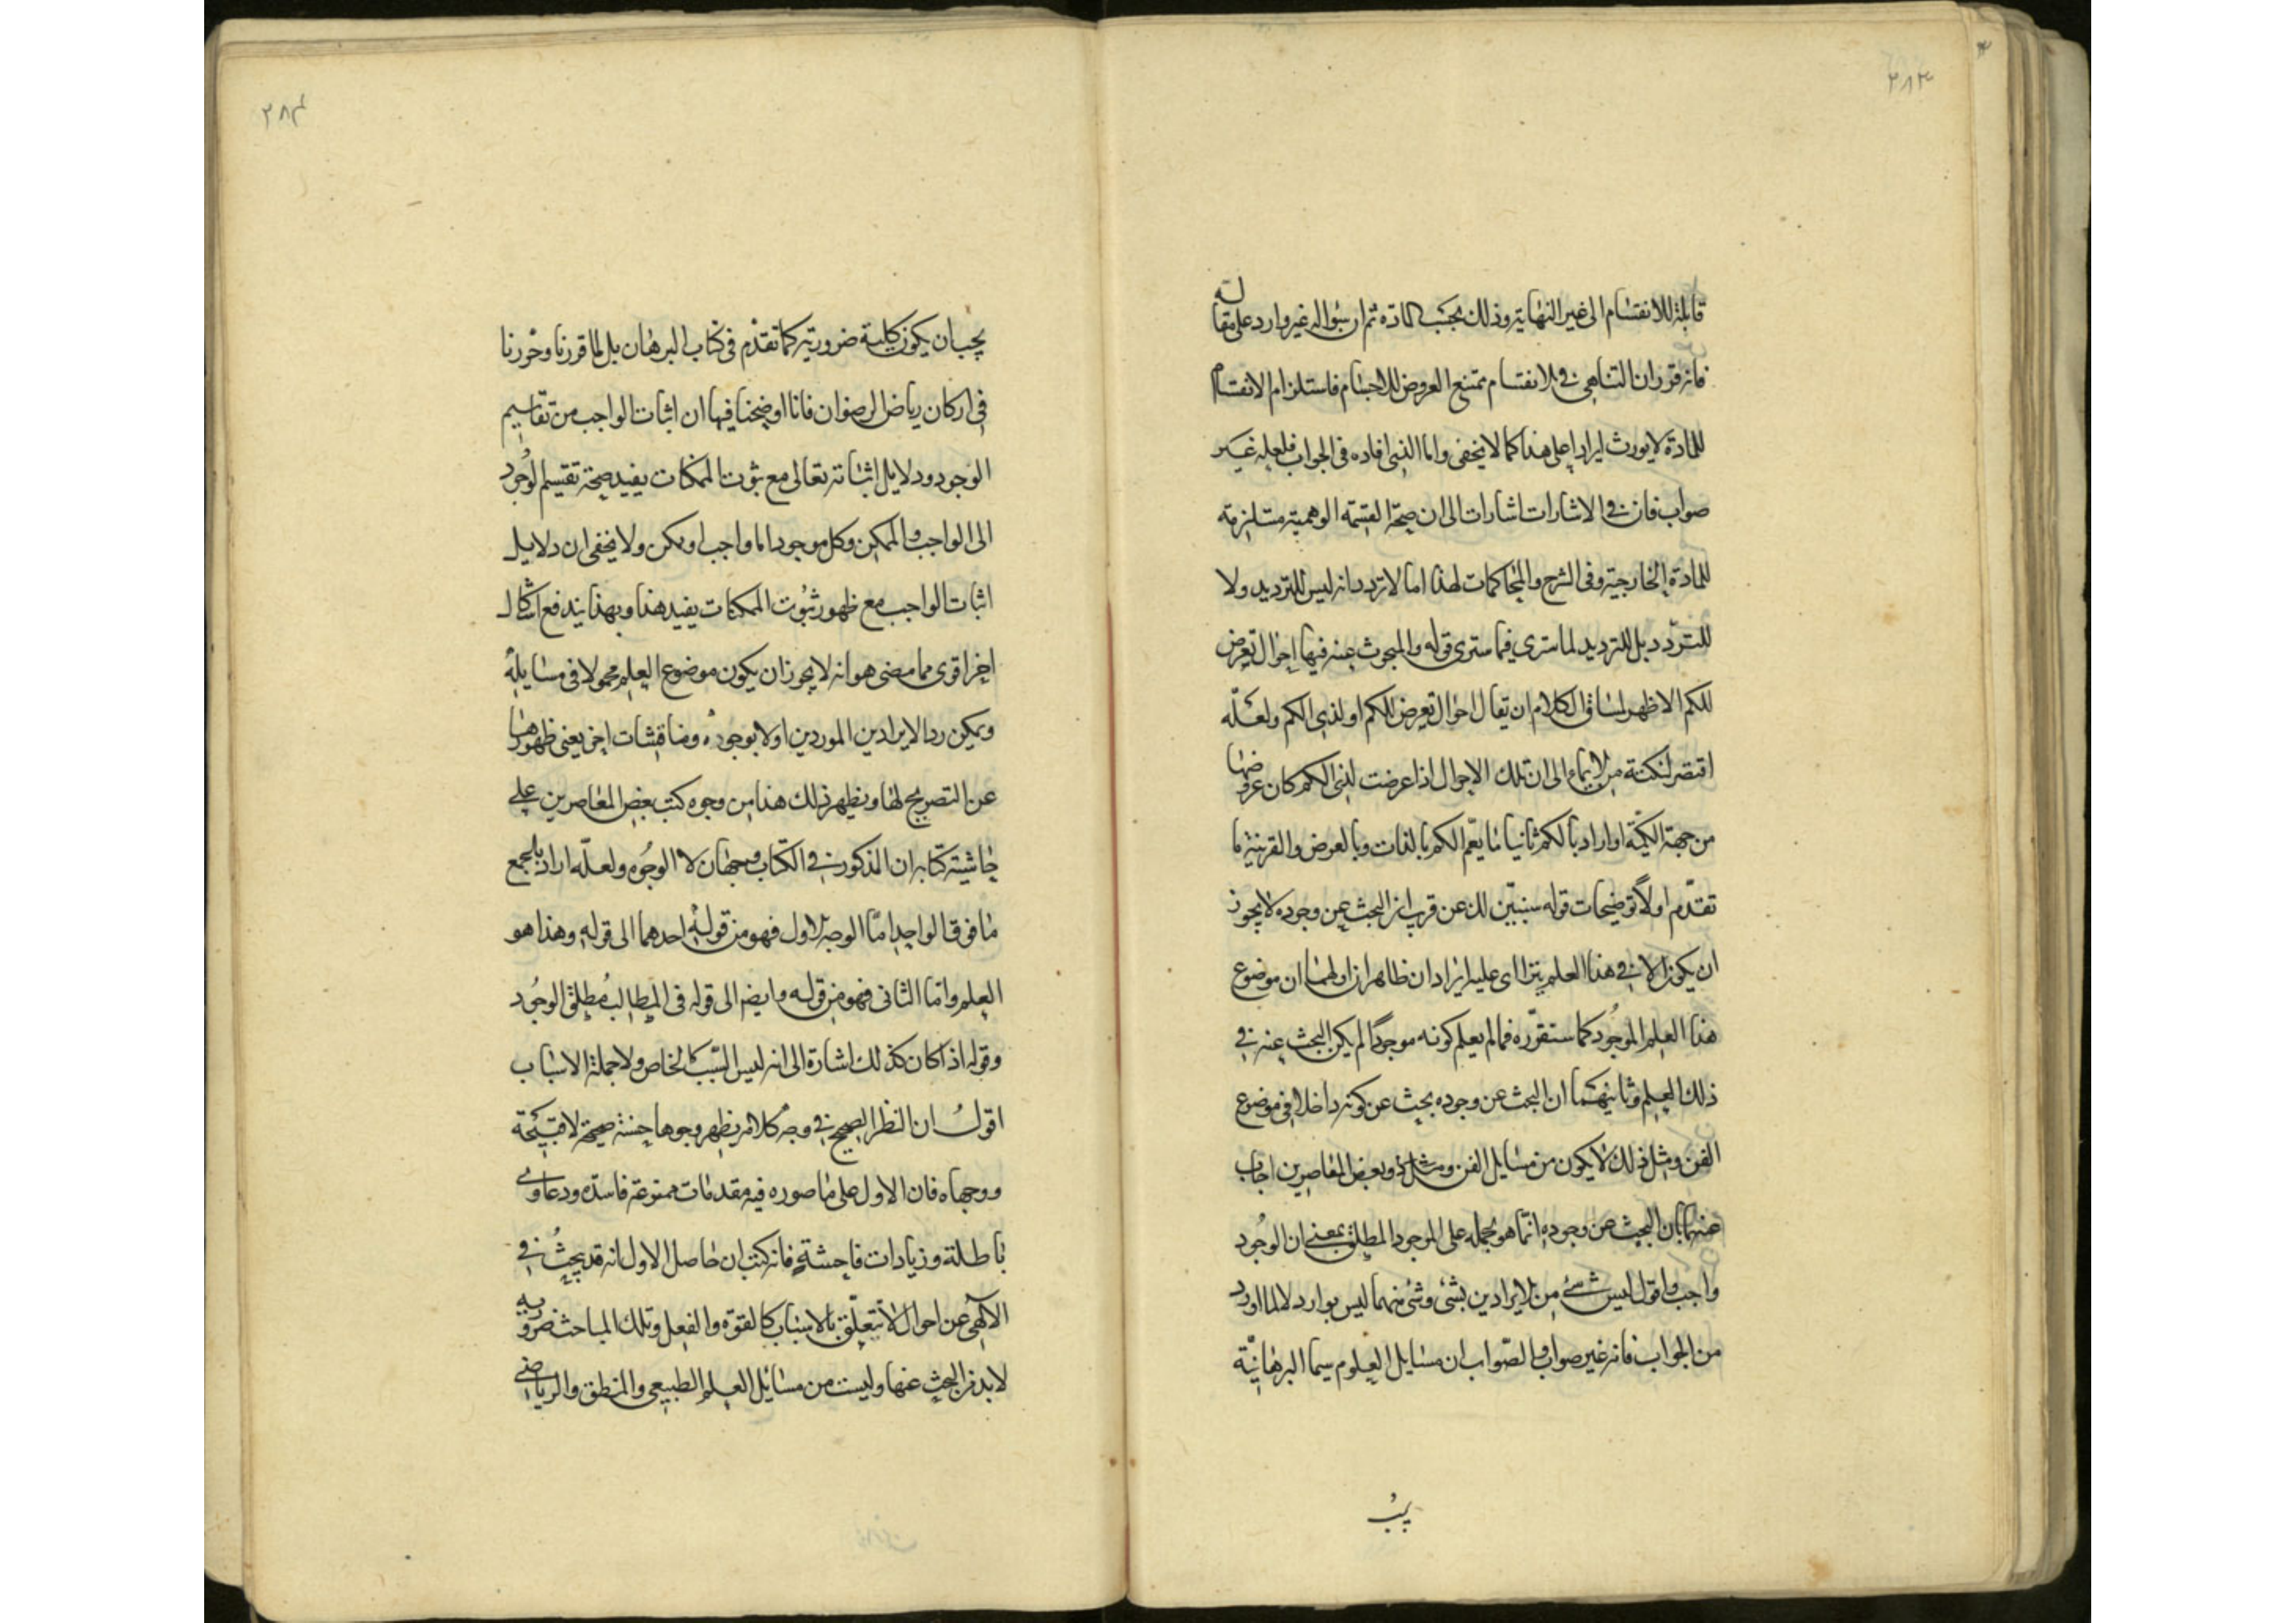 ٣٨٣
قابلة للانقسام الى غير النهاية وذلك بحسب المادة ثم ان سؤاله غير وارد على مقالته
فانه قرر ان التناهى فى الانقسام يمتنع العروض للاجسام فاستلزام الانقسام
للمادة لا يورث ايرادا على هذا كما لا يخفى واما الذى افاده فى الجواب فلعله غير
صواب فان فى الاشارات اشارات الى ان صحة القسمة الوهمية مستلزمة
للمادة الخارجية وفى الشرح والمحاكمات لهذا اما لا تردد انه ليس للترديد ولا
للتردد بل للترديد لما سترى فيما سترى قوله والمبحوث عنه فيها احوال تعرض
للكم الاظهر لساق الكلام ان يقال احوال تعرض للكم او لذى الكم ولعله
اقتصر لنكتة من الايماء الى ان تلك الاحوال اذا عرضت لذى الكم كان عروضها
من جهة الكمية او اراد بالكم ثانيا ما يعم الكم بالذات وبالعرض والقرينة ما
تقدم اولا توضيحات قوله سنبين لك عن قريب ان البحث عن وجوده لا يجوز
ان يكون الا فى هذا العلم يترااى عليه ايرادان ظاهران اولهما ان موضوع
هذا العلم الموجود كما سنقرره فما لم يعلم كونه موجودا لم يكن البحث عنه فى
ذلك العلم وثانيهما ان البحث عن وجوده بحث عن كونه داخلا فى موضوع
الفن ومثل ذلك لا يكون من مسايل الفن وبعض المعاصرين اجاب
عنهما بان البحث عن وجوده انما هو بحمله على الموجود المطلق بمعنى ان الوجود
واجب واقول ليس شىء من الايرادين بشى وشى منهما ليس بوارد لا لما اورد
من الجواب فانه غير صواب والصواب ان مسايل العلوم سيما البرهانية
يجب
٣٨٤
يجب ان يكون كلية ضرورية كما تقدم فى كتاب البرهان بل لما قررنا وحررنا
فى اركان رياض الرضوان فانا اوضحنا فيها ان اثبات الواجب من تقاسيم
الوجود ودلايل اثباته تعالى مع ثبوت الممكنات يفيد صحة تقسيم الوجود
الى الواجب والممكن وكل موجود اما واجب او ممكن ولا يخفى ان دلايل
اثبات الواجب مع ظهور ثبوت الممكنات يفيد هذا وبهذا يندفع اشكال
اخر اقوى مما مضى هو انه لا يجوز ان يكون موضوع العلم محمولا فى مسايله
ويمكن رد الايرادين الموردين اولا بوجوه ومناقشات اخر يغنى ظهورها
عن التصريح لها ويظهر ذلك هذا من وجوه كتب بعض المعاصرين على
حاشية كتابه ان المذكور فى الكتاب وجهان لا الوجوه ولعله اراد بالجمع
ما فوق الواحد اما الوجه الاول فهو من قوليه احدهما الى قوله وهذا هو
العلم واما الثانى فهو من قوله وايضا الى قوله فى المطالب مطلق الوجود
وقوله اذا كان كذلك اشارة الى انه ليس السبب الخاص ولا جملة الاسباب
اقول ان النظر الصحيح فى وجه كلامه يظهر وجوها حسنة صحيحة لا قبيحة
ووجهاه فان الاول على ما صوره فيه مقدمات ممنوعة فاسدة ودعاوى
باطلة وزيادات فاحشة فانه كتب ان حاصل الاول انه قد يبحث فى
الالهى عن احوال لا تتعلق بالاسباب كالقوة والفعل وتلك المباحث ضرورية
لابد من البحث عنها وليست من مسائل العلم الطبيعى والمنطق والرياضى